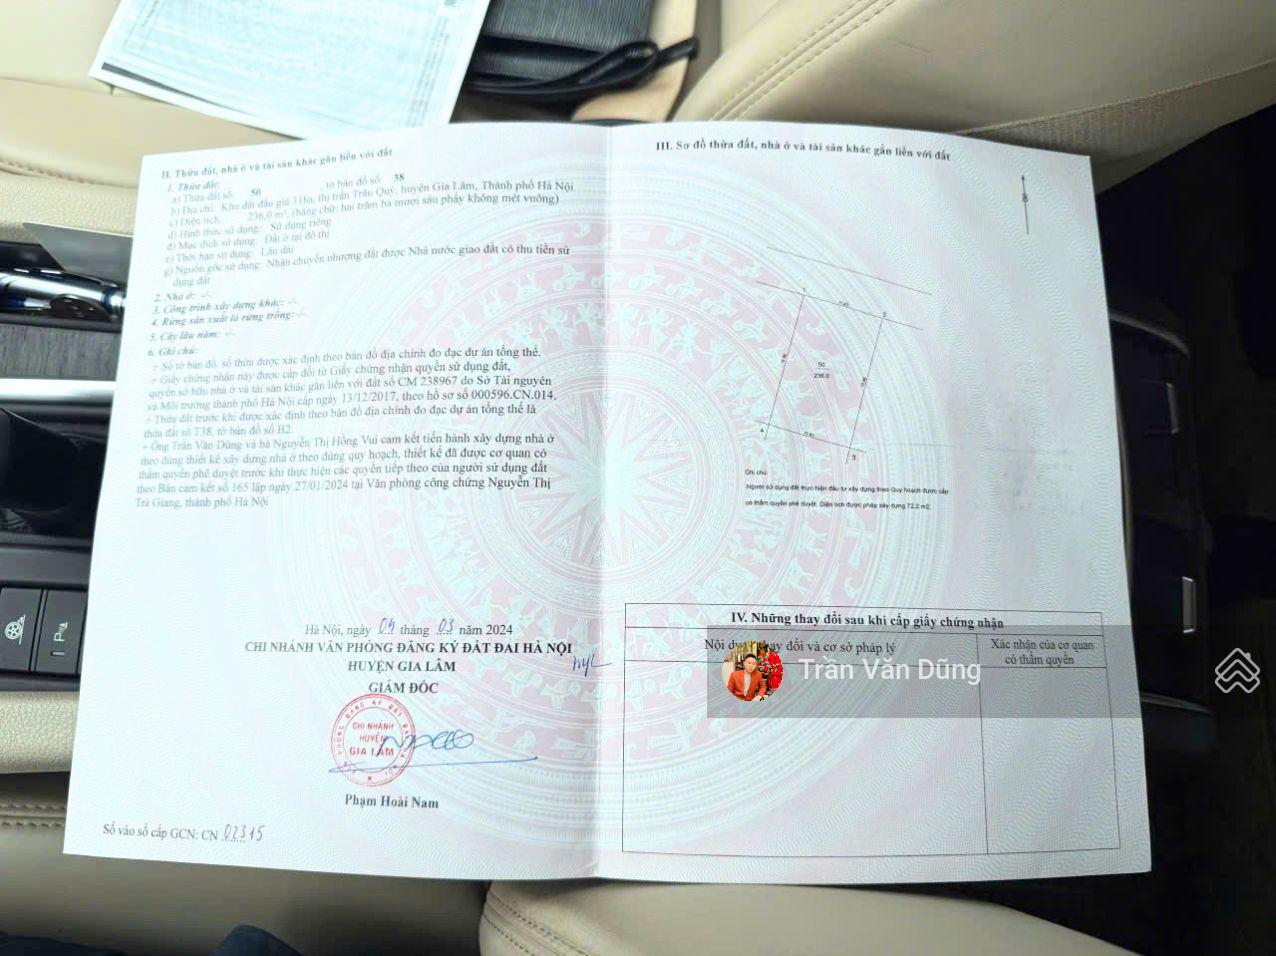 II. Thửa đất, nhà ở và tài sản khác gắn liền với đất
1. Thửa đất:
a) Thửa đất số: 50 , tờ bản đồ số: 38
b) Địa chỉ: Khu đất đấu giá 31ha, thị trấn Trâu Quỳ, huyện Gia Lâm, Thành phố Hà Nội
c) Diện tích: 236,0 m², (bằng chữ: hai trăm ba mươi sáu phẩy không mét vuông)
d) Hình thức sử dụng: Sử dụng riêng
đ) Mục đích sử dụng: Đất ở tại đô thị
e) Thời hạn sử dụng: Lâu dài
g) Nguồn gốc sử dụng: Nhận chuyển nhượng đất được Nhà nước giao đất có thu tiền sử
dụng đất
2. Nhà ở: -/-
3. Công trình xây dựng khác: -/-
4. Rừng sản xuất là rừng trồng: -/-
5. Cây lâu năm: -/-
6. Ghi chú:
- Số tờ bản đồ, số thửa được xác định theo bản đồ địa chính đo đạc dự án tổng thể.
- Giấy chứng nhận này được cấp đổi từ Giấy chứng nhận quyền sử dụng đất,
quyền sở hữu nhà ở và tài sản khác gắn liền với đất số CM 238967 do Sở Tài nguyên
và Môi trường thành phố Hà Nội cấp ngày 13/12/2017, theo hồ sơ số 000596.CN.014.
- Thửa đất trước khi được xác định theo bản đồ địa chính đo đạc dự án tổng thể là
thửa đất số T38, tờ bản đồ số B2.
- Ông Trần Văn Dũng và bà Nguyễn Thị Hồng Vui cam kết tiến hành xây dựng nhà ở
theo đúng thiết kế xây dựng nhà ở theo đúng quy hoạch, thiết kế đã được cơ quan có
thẩm quyền phê duyệt trước khi thực hiện các quyền tiếp theo của người sử dụng đất
theo Bản cam kết số 165 lập ngày 27/01/2024 tại Văn phòng công chứng Nguyễn Thị
Trà Giang, thành phố Hà Nội
Hà Nội, ngày 04 tháng 03 năm 2024
CHI NHÁNH VĂN PHÒNG ĐĂNG KÝ ĐẤT ĐAI HÀ NỘI
HUYỆN GIA LÂM
GIÁM ĐỐC
CHI NHÁNH
HUYỆN
GIA LÂM
Phạm Hoài Nam
Số vào sổ cấp GCN: CN 02315
III. Sơ đồ thửa đất, nhà ở và tài sản khác gắn liền với đất
B
1
2
236.0
4
3
Ghi chú:
Người sử dụng đất thực hiện đầu tư xây dựng theo Quy hoạch được cấp
có thẩm quyền phê duyệt. Diện tích được phép xây dựng 72.2 m2.
IV. Những thay đổi sau khi cấp giấy chứng nhận
Nội dung thay đổi và cơ sở pháp lý
Xác nhận của cơ quan
có thẩm quyền
Trần Văn Dũng